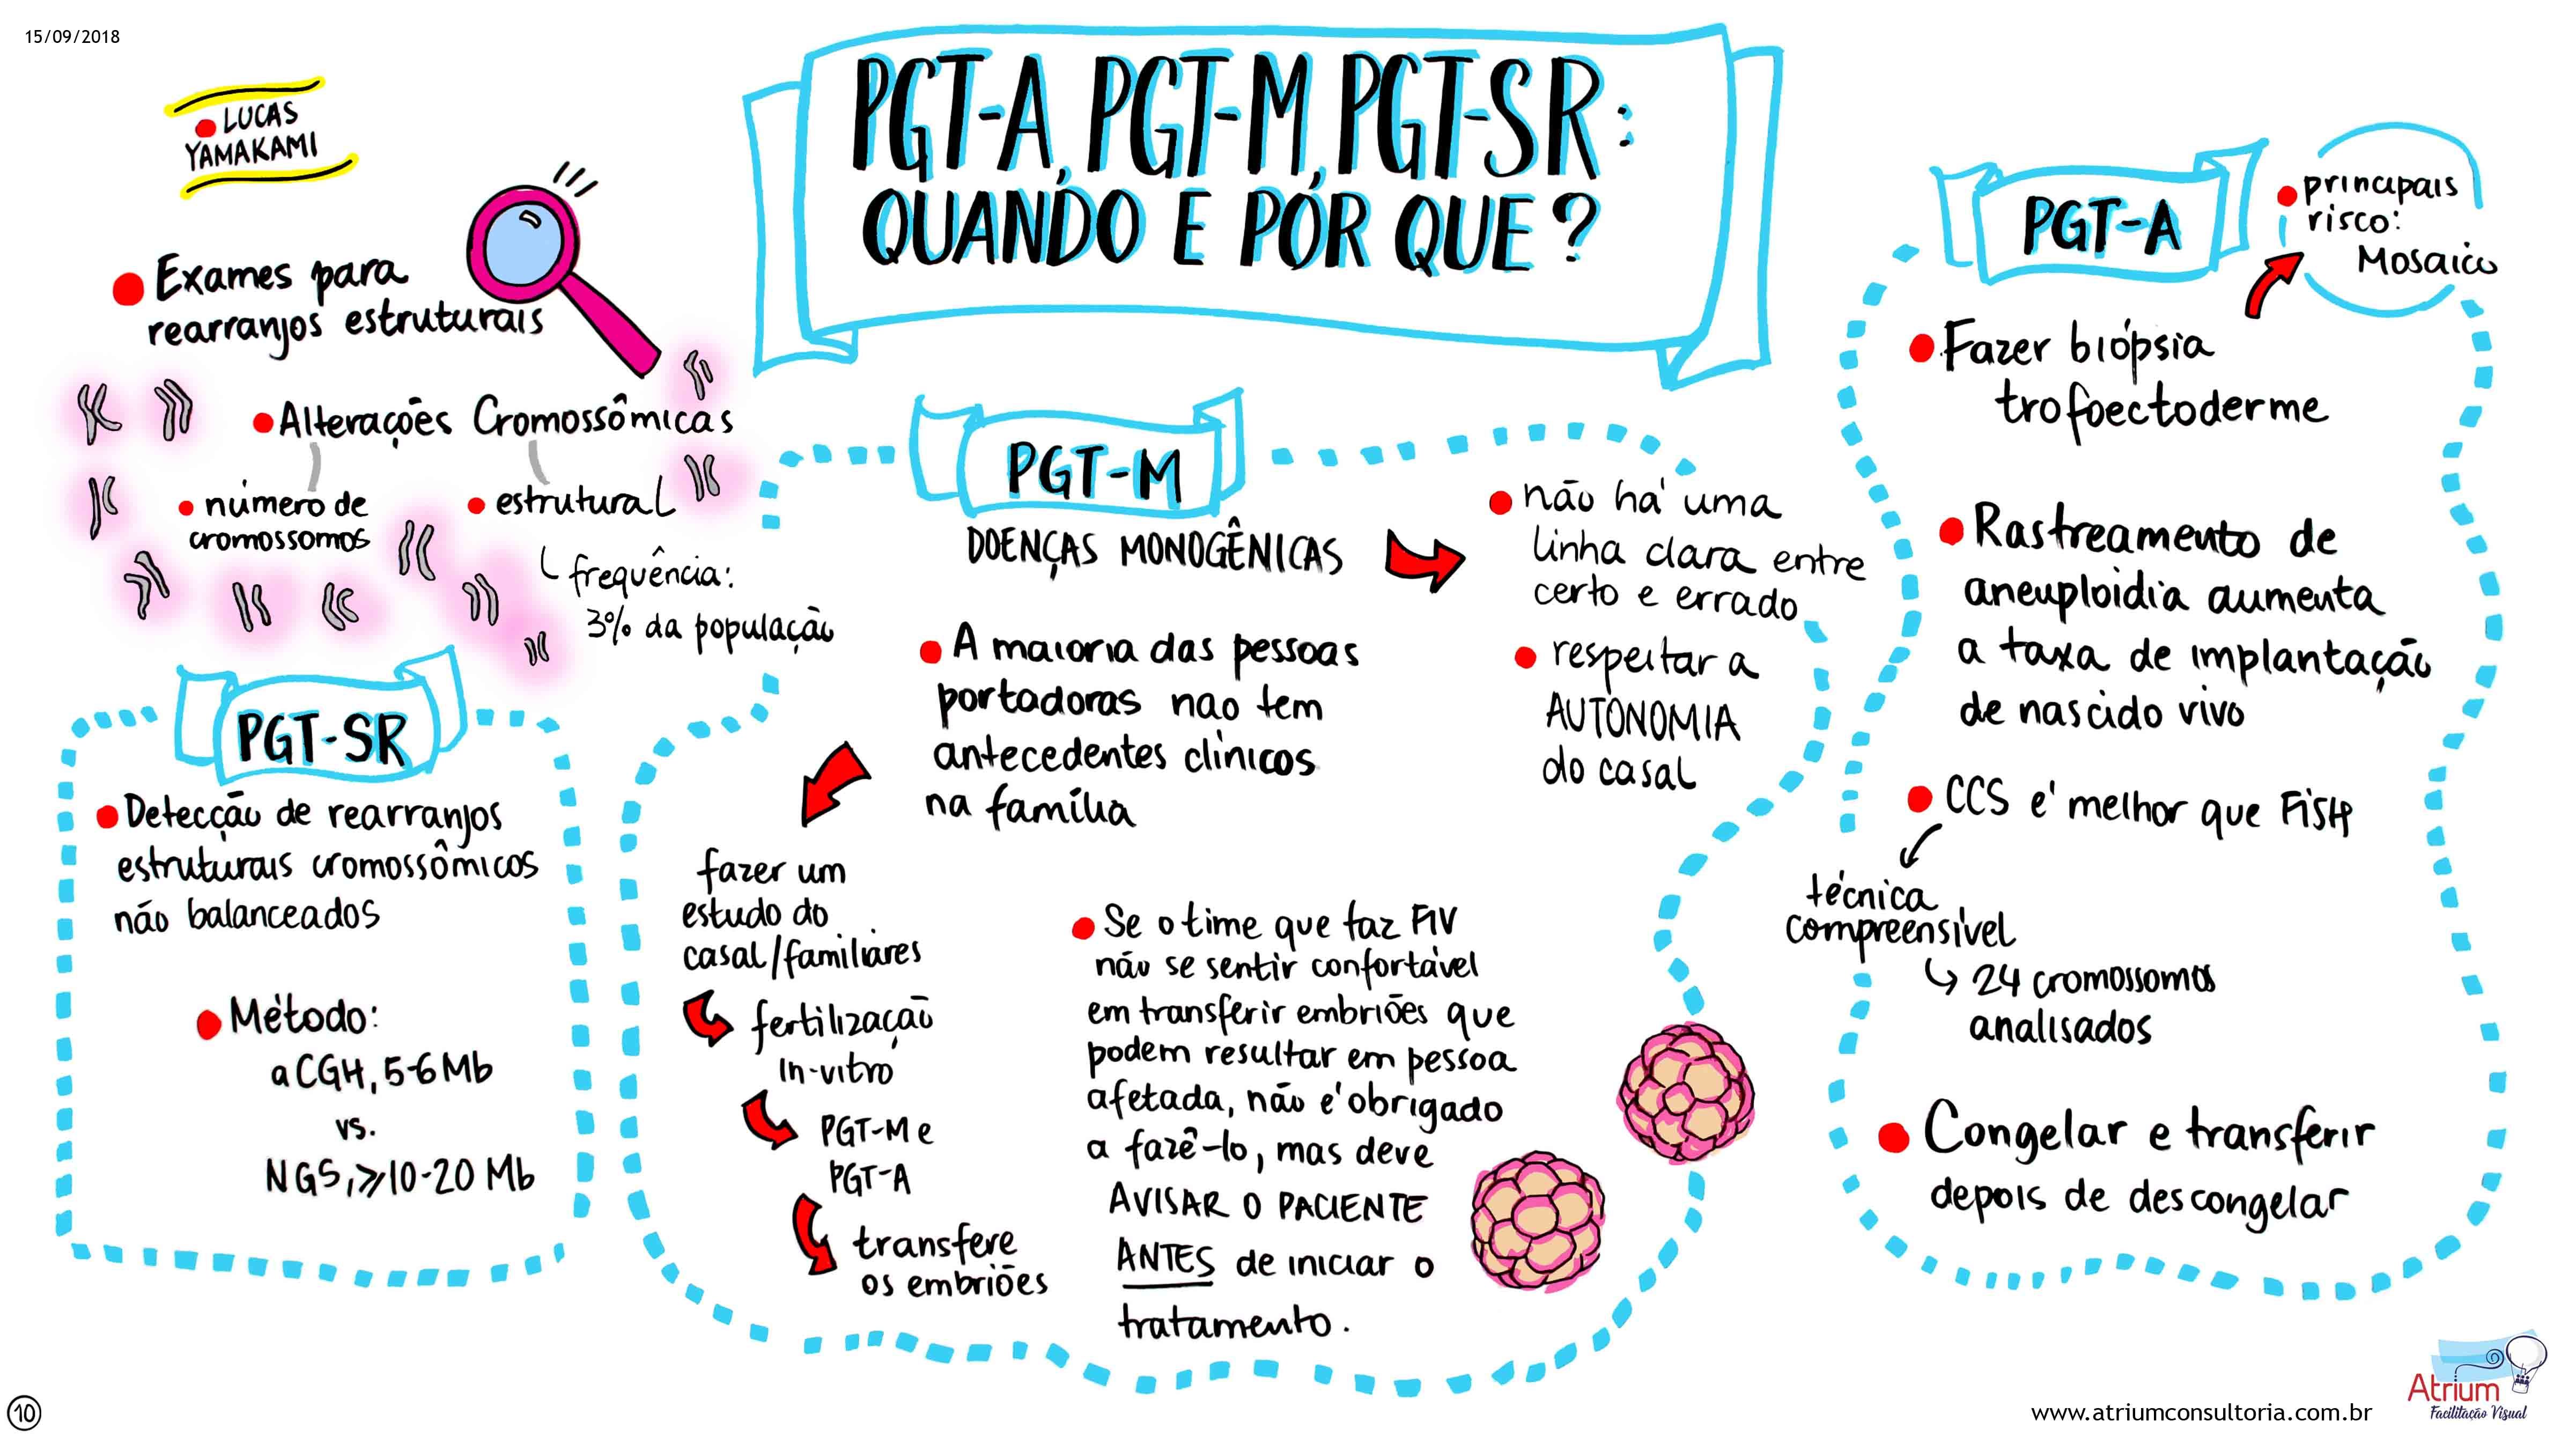 15/09/2018
LUCAS
YAMAKAMI
PGT-A, PGT-M, PGT-SR:
QUANDO E POR QUE?
Exames para
rearranjos estruturais
Alterações Cromossômicas
número de
cromossomos
estrutural
frequência:
3% da população
PGT-SR
Detecção de rearranjos
estruturais cromossômicos
não balanceados
Método:
aCGH, 5-6 Mb
vs.
NGS, ≥10-20 Mb
PGT-M
DOENÇAS MONOGÊNICAS
não há uma
linha clara entre
certo e errado
respeitar a
AUTONOMIA
do casal
A maioria das pessoas
portadoras nao tem
antecedentes clínicos
na família
fazer um
estudo do
casal/familiares
fertilização
In-vitro
PGT-M e
PGT-A
transfere
os embriões
Se o time que faz FIV
não se sentir confortável
em transferir embriões que
podem resultar em pessoa
afetada, não é obrigado
a fazê-lo, mas deve
AVISAR O PACIENTE
ANTES de iniciar o
tratamento.
PGT-A
principais
risco:
Mosaico
Fazer biópsia
trofoectoderme
Rastreamento de
aneuploidia aumenta
a taxa de implantação
de nascido vivo
CCS é melhor que FISH
técnica
compreensível
24 cromossomos
analisados
Congelar e transferir
depois de descongelar
10
www.atriumconsultoria.com.br
Atrium
Facilitação Visual